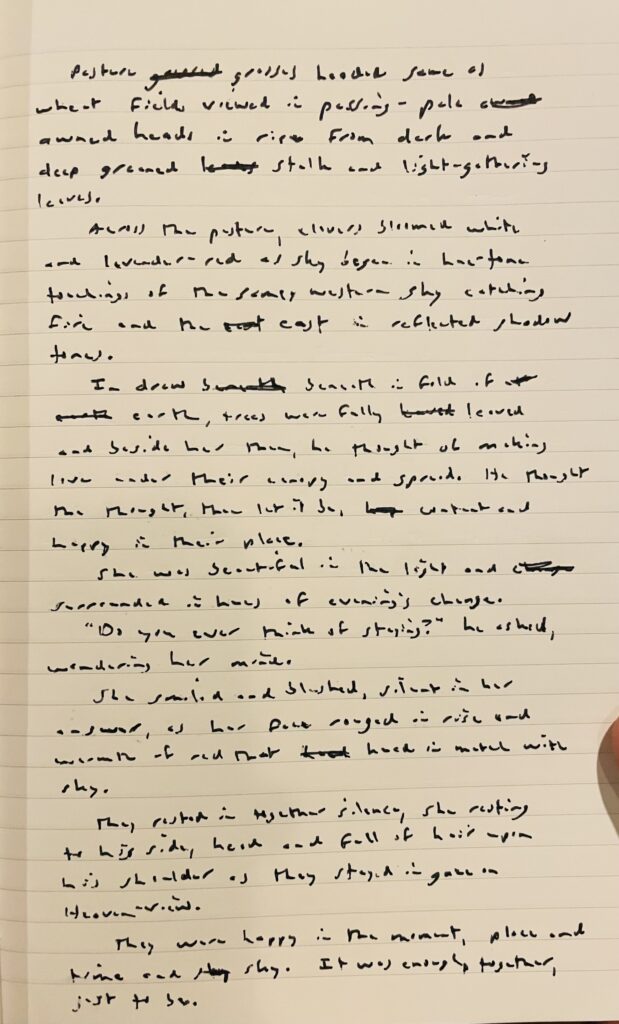 Pasture grasses headed same as
wheat fields viewed in passing - pale
awned heads in rise from dark and
deep greened stalk and light-gathering
leaves.
Across the pasture, clovers bloomed white
and lavender-red as sky began in hue-tone
touchings of the western sky catching
fire and the east in reflected shadow
tones.
In draw beneath in fold of
earth, trees were fully leaved
and beside her then, he thought of making
love under their canopy and spread. He thought
the thought, then let it be, content and
happy in their place.
She was beautiful in the light and
surrounded in hues of evening's change.
"Do you ever think of staying?" he asked,
wondering her mind.
She smiled and blushed, silent in her
answer, as her face rouged in rise and
warmth of red that hued in match with
sky.
They rested in together silence, she resting
to his side, head and fall of hair upon
his shoulder as they stayed in gaze on
Heaven-view.
They were happy in the moment, place and
time and sky. It was enough, together,
just to be.